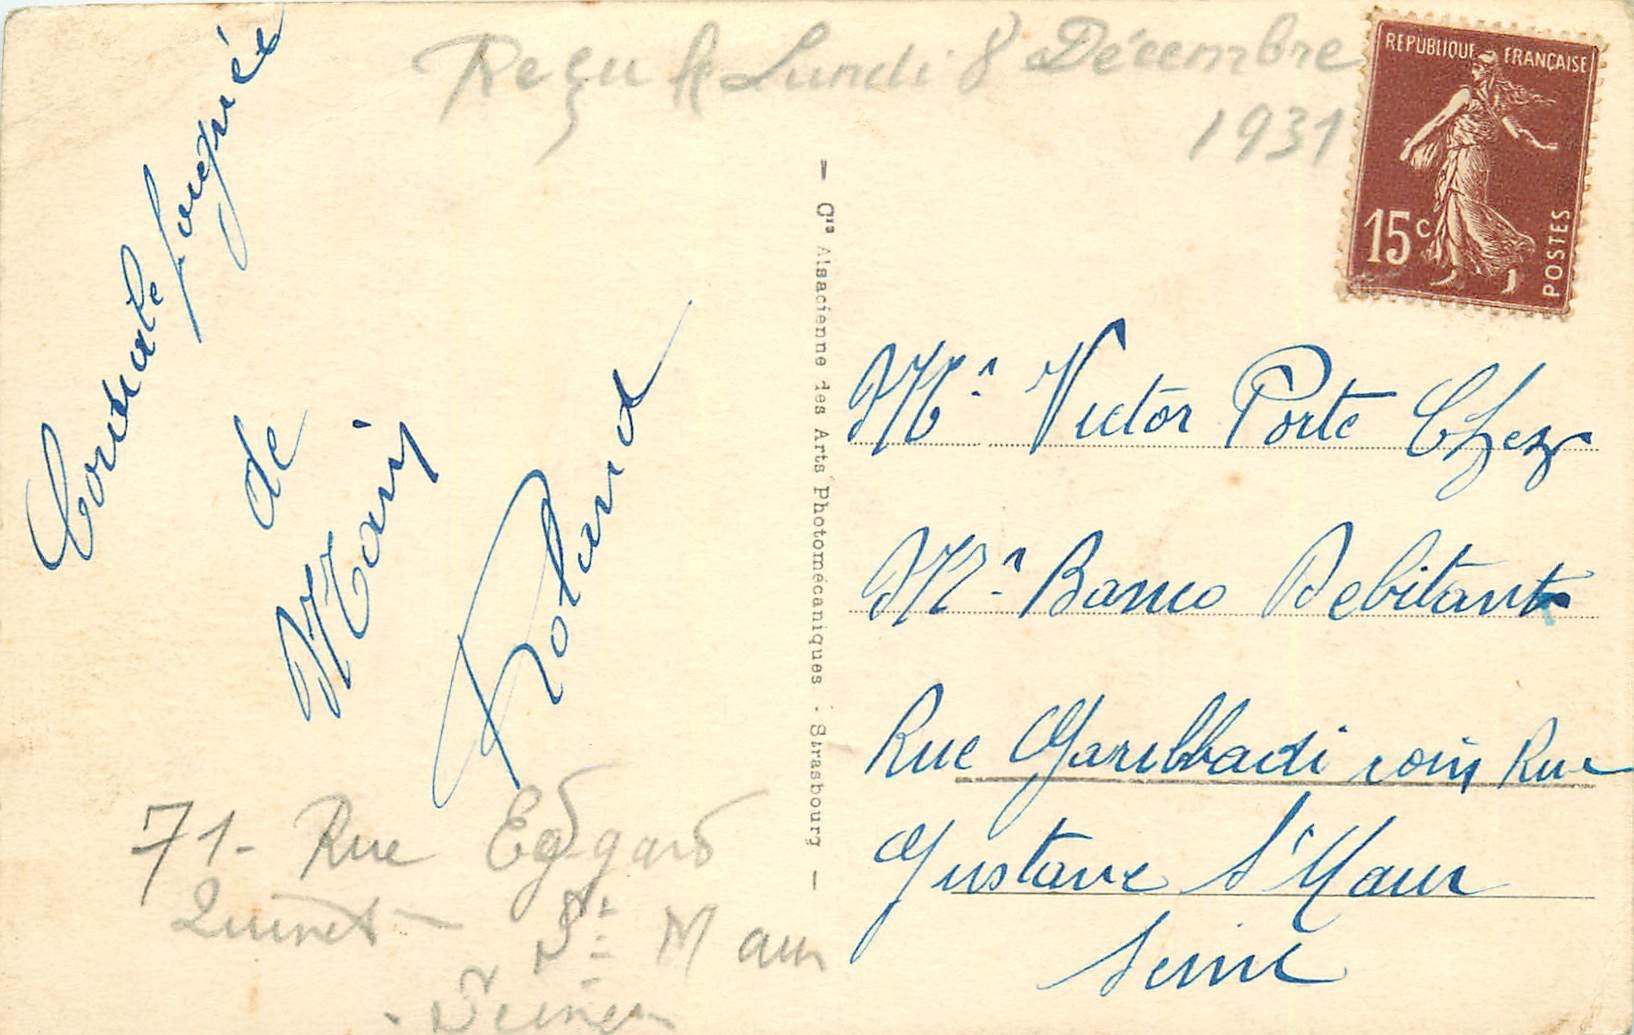 Reçu le Lundi 8 Décembre
1931
REPUBLIQUE FRANÇAISE
15c
POSTES
Cordiale poignée
de
Main
Roland
71- Rue Edgard
Quinet - St Maur
- Seine
- Cie Alsacienne des Arts Photomécaniques - Strasbourg -
Mr Victor Porte Chez
Mr Banco Debitant
Rue Garibbadi coin Rue
Gustave St Maur
Seine